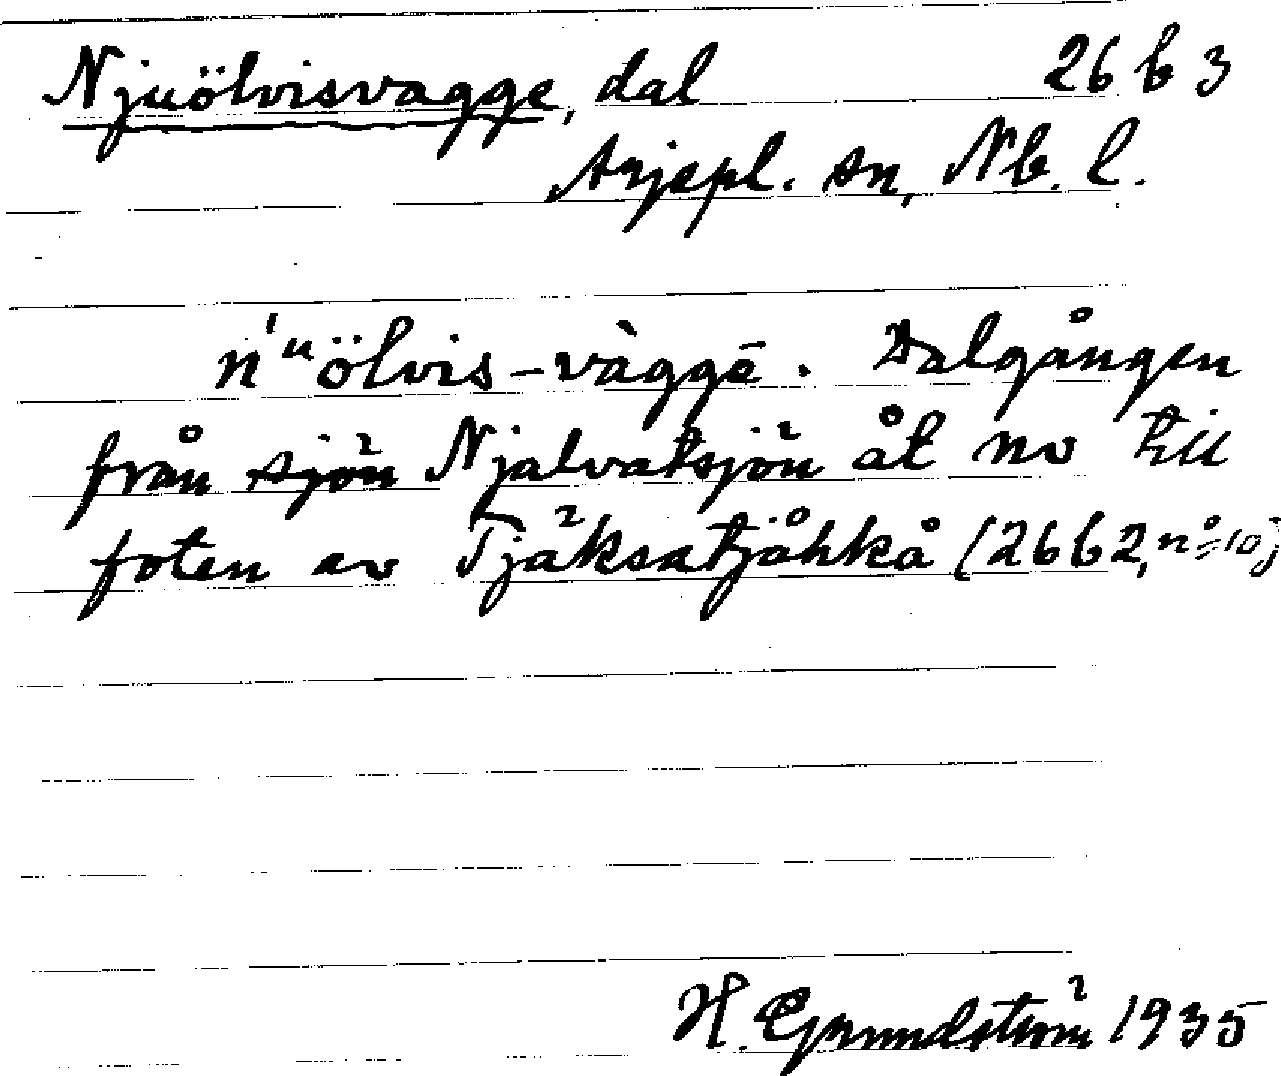 Njuölvisvagge, dal 26 b 3
Arjepl. sn, Nb. l.
n'ᵘölvis-vàggē. Dalgången
från sjön Njalvatsjön åt nv till
foten av Tjäksatjåhkå (26 b 2, nº 10)
H. Grundström 1935